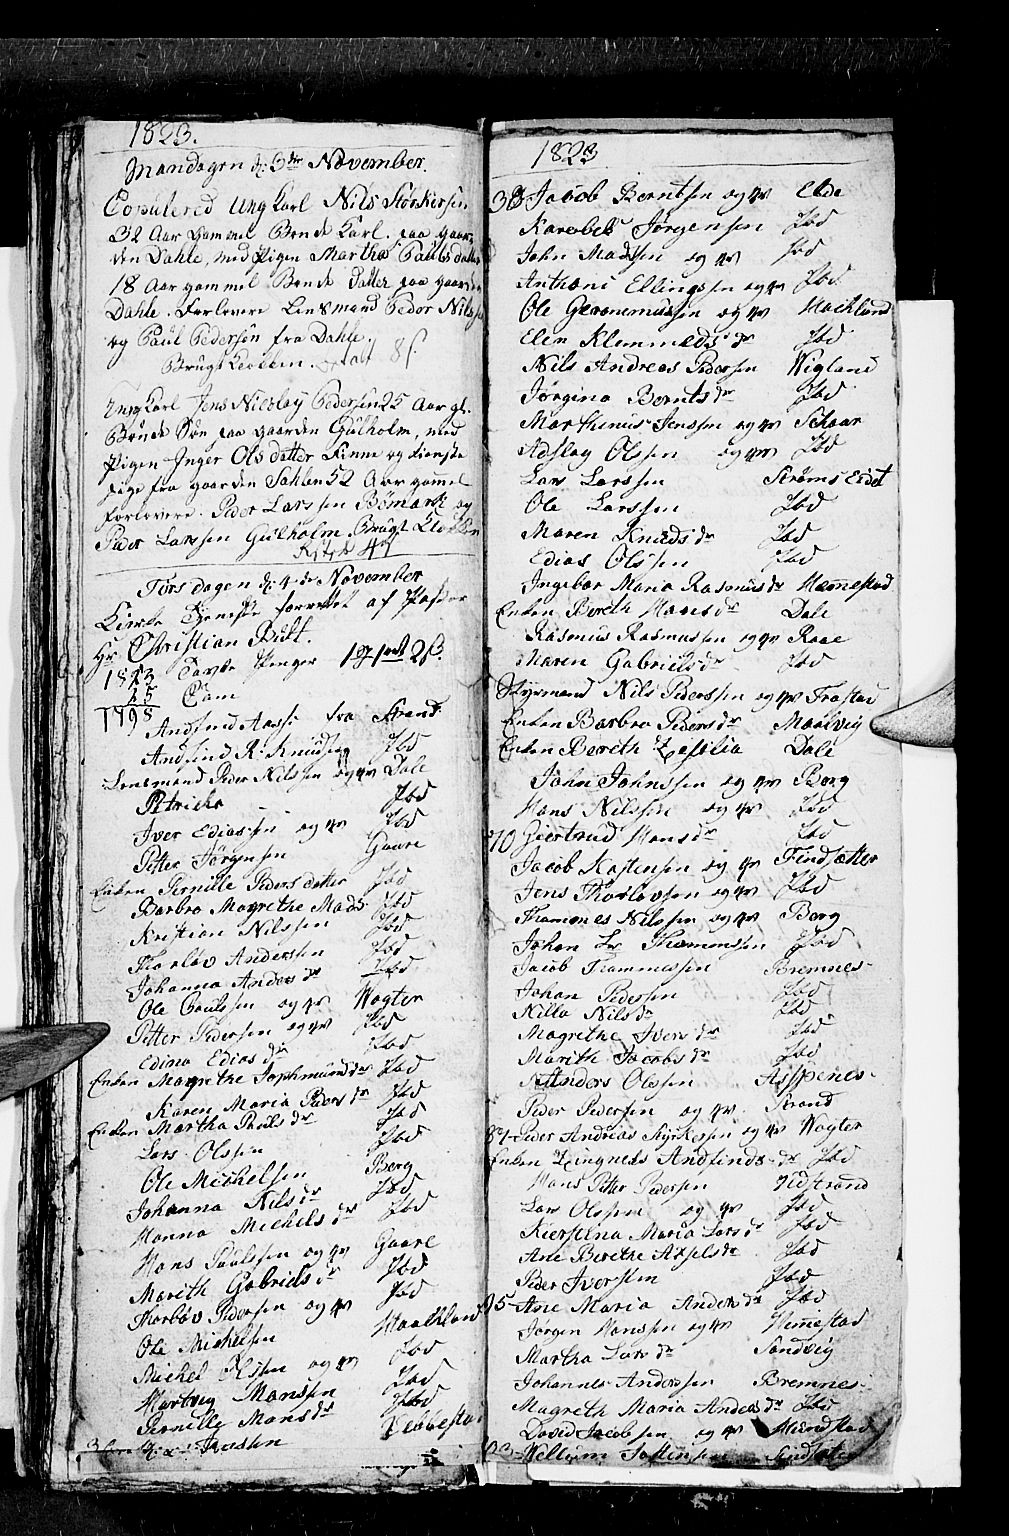 1823.
Mandagen d: 3die November.
Copulered Ung Karl Nils Störkersen
32 Aar Gammel Bonde Karl paa Gaar-
den Dahle, med Pigen Martha Pauls datter
18 Aar gammel Bonde Datter paa gaarden
Dahle. Forlovere Lensmand Peder Nilssen
og Paul Pedersen fra Dahle.
Brugt Klokken.
Ung Karl Jens Nicolay Pedersen 25 Aar gl.
Bonde Søn paa gaarden Gulholm, med
Pigen Inger Ols datter Finne og tieneste
Pige fra gaarden Sahlen 52 Aar gamel
Forlovere. Peder Larssen Bömark og
Peder Larssen Gulholm Brugt Klokken
Torsdagen d: 4de November
Kirke Tjeneste forrettet af Pastor
Hr Christian Bull.
1823 Tavle Penger
25 Com
1798
Andfind Aasse fra Strand
Andfind R. Knudsen Ibd
Lensmand Peder Nilssen og qv Dale
Petricka Ibd
Iver Ediassen og qv Ibd
Petter Jørgensen Gaare
Enken Pernille Peders datter Ibd
Barbro Magrethe Mads Ibd
Kristian Nilssen Ibd
Thorløv Anderssen Ibd
Johanna Anders dr Ibd
Ole Paulssen og qv Vogter
Petter Pedersen og qv Ibd
Edina Edias dr Ibd
Enken Magrethe Sophmunds dr Ibd
Karen Maria Peders dr Ibd
Enken Martha Pauls dr Ibd
Lars Olssen Ibd
Ole Michelsen Berg
Johanna Nils dr Ibd
Hanna Michels dr Ibd
Hans Paulssen og qv Gaare
Marith Gabriels dr Ibd
Thorløv Pedersen og qv Ibd
Ole Michelsen Haakland
Michel Olssen og qv Ibd
Hartvig Hanssen Ibd
Pernille Hans dr Ibd
1823
38 Jacob Berntsen og qv Elde
Karebek Jørgensen Ibd
John Madssen og qv Ibd
Anthoni Ellingssen og qv Ibd
Ole Geronimussen og qv Haakland
Elen Klemmeds dr Ibd
Nils Andreas Pedersen Wigland
Jørgina Bernts dr Ibd
Marthinus Jenssen og qv Schaar
Adsloy Olssen og qv Ibd
Lars Larssen Strøms Eidet
Ole Larssen Ibd
Maren Knuds dr Ibd
Edias Olssen Ibd
Ingebor Maria Rasmus dr Hemestad
Enken Bereth Hans dr Dale
Rasmus Rasmussen og qv Raae
Maren Gabriels dr Ibd
Styrmand Nils Pederssen og qv Frastad
Enken Barbro Peders dr Maalvig
Enken Berith Zesilia Dale
John Johnssen og qv Berg
Hans Nilssen og qv Ibd
70 Giertrud Hans dr Ibd
Jacob Kastensen og qv Findsætter
Jens Thorløvsen og qv Ibd
Thommes Nilssen og qv Berg
Johan Lr Thommessen Ibd
Jacob Thommessen Bremnes
Johan Pedersen Ibd
Nilla Nils dr Ibd
Magrethe Ivers dr Ibd
Marith Jacobs dr Ibd
Anders Olssen Aispenes
Peder Pedersen og qv Strand
87 Peder Andreas Styrkersen og qv Vogter
Enken Zingneds Andfinds dr Ibd
Hans Peter Pedersen Vidstrand
Lars Olssen og qv Ibd
Kierstina Maria Lars dr Ibd
Ane Berethe Axsels dr Ibd
Peder Iverssen Ibd
95 Ane Maria Anders dr Ibd
Jørgen Hanssen og qv Hemestad
Martha Lars dr Sandvig
Johannes Anderssen Bremnes
Magreth Maria Anders dr Ibd
David Jacobsen og qv
Welliam Jostensen